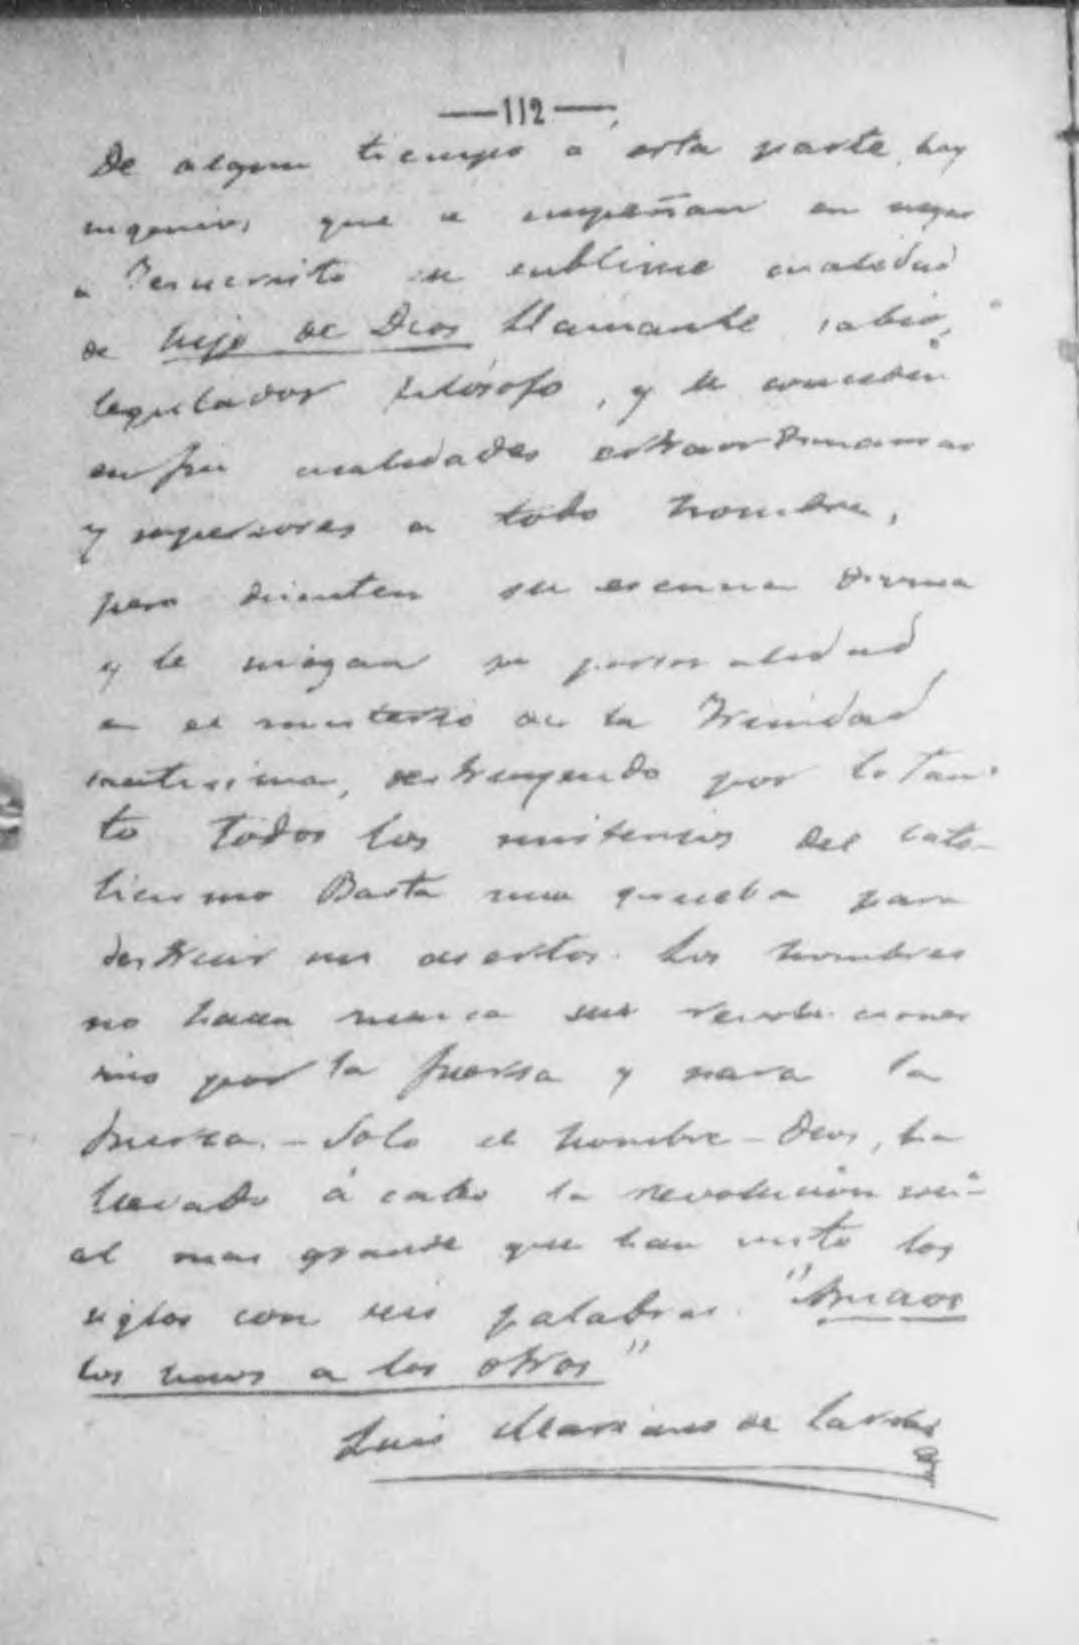 —112—
De algun tiempo a esta parte, hay
ingenios que se empeñan en negar
a Jesucristo su sublime cualidad
de hijo de Dios Llamanle sabio,
legislador filósofo, y le conceden
en fin cualidades extraordinarias
y superiores a todo hombre,
pero discuten su esencia divina
y le niegan su personalidad
en el misterio de la Trinidad
santisima, destruyendo por lo tan-
to todos los misterios del cato-
licismo Basta una prueba para
destruir sus asertos. Los hombres
no hacen nunca sus revoluciones
sino por la fuerza y para la
fuerza. – Solo el hombre – Dios, ha
llevado á cabo la revolucion soci-
al mas grande que han visto los
siglos con seis palabras. "Amaos
los unos a los otros"
Luis Mariano de Larra